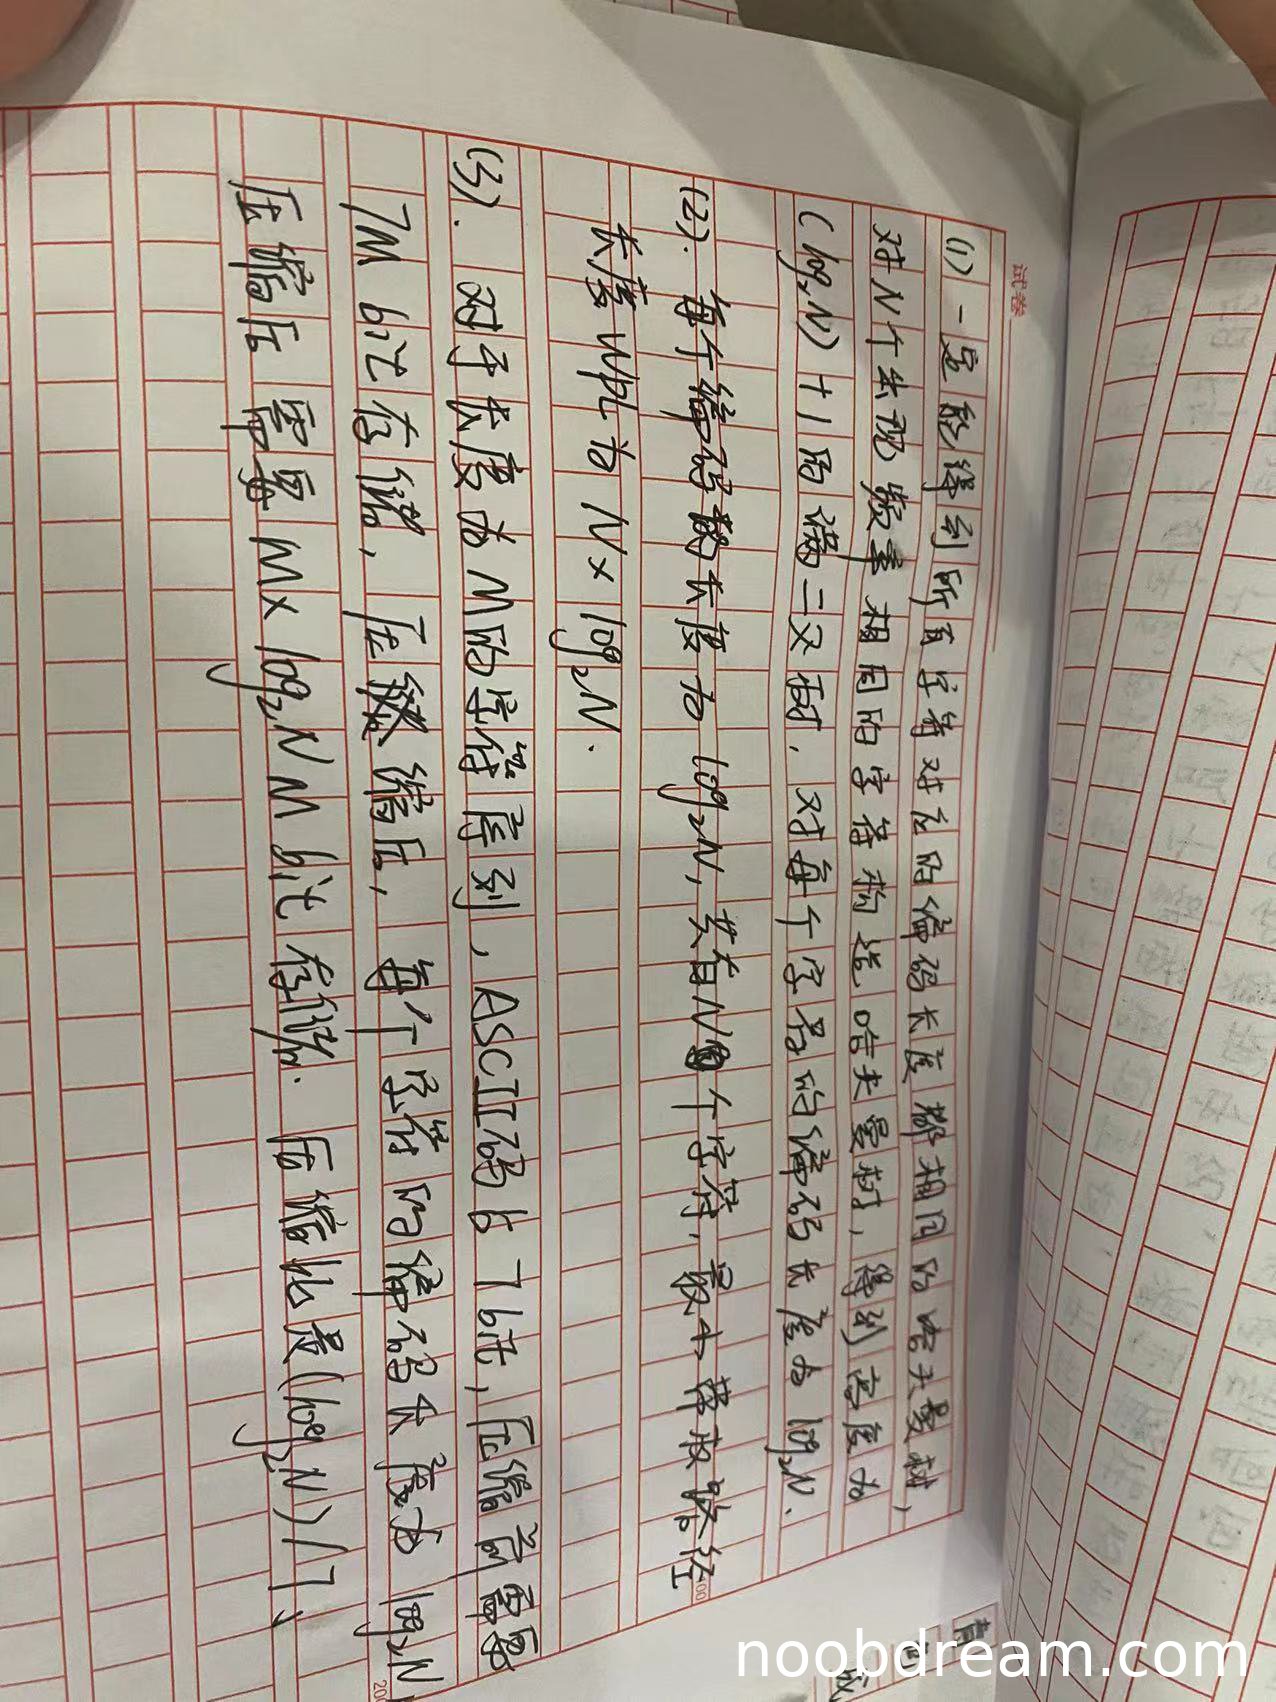 试卷
(1) 一定能得到所有字符对应的编码长度都相同的哈夫曼树,
对N个出现频率相同的字符构造哈夫曼树, 得到高度为
(log₂N)+1的满二叉树. 对每个字符的编码长度为log₂N.
(2). 每个编码的长度为 log₂N, 共有N个字符, 最小带权路径
长度WPL为 N×log₂N.
(3). 对于长度为M的字符序列, ASCII码占7bit, 压缩前需要
7M bit存储, 压缩后, 每个字符的编码长度为 log₂N
压缩后需要M×log₂N M bit存储. 压缩比是(log₂N)/7
100
200
noobdream.com